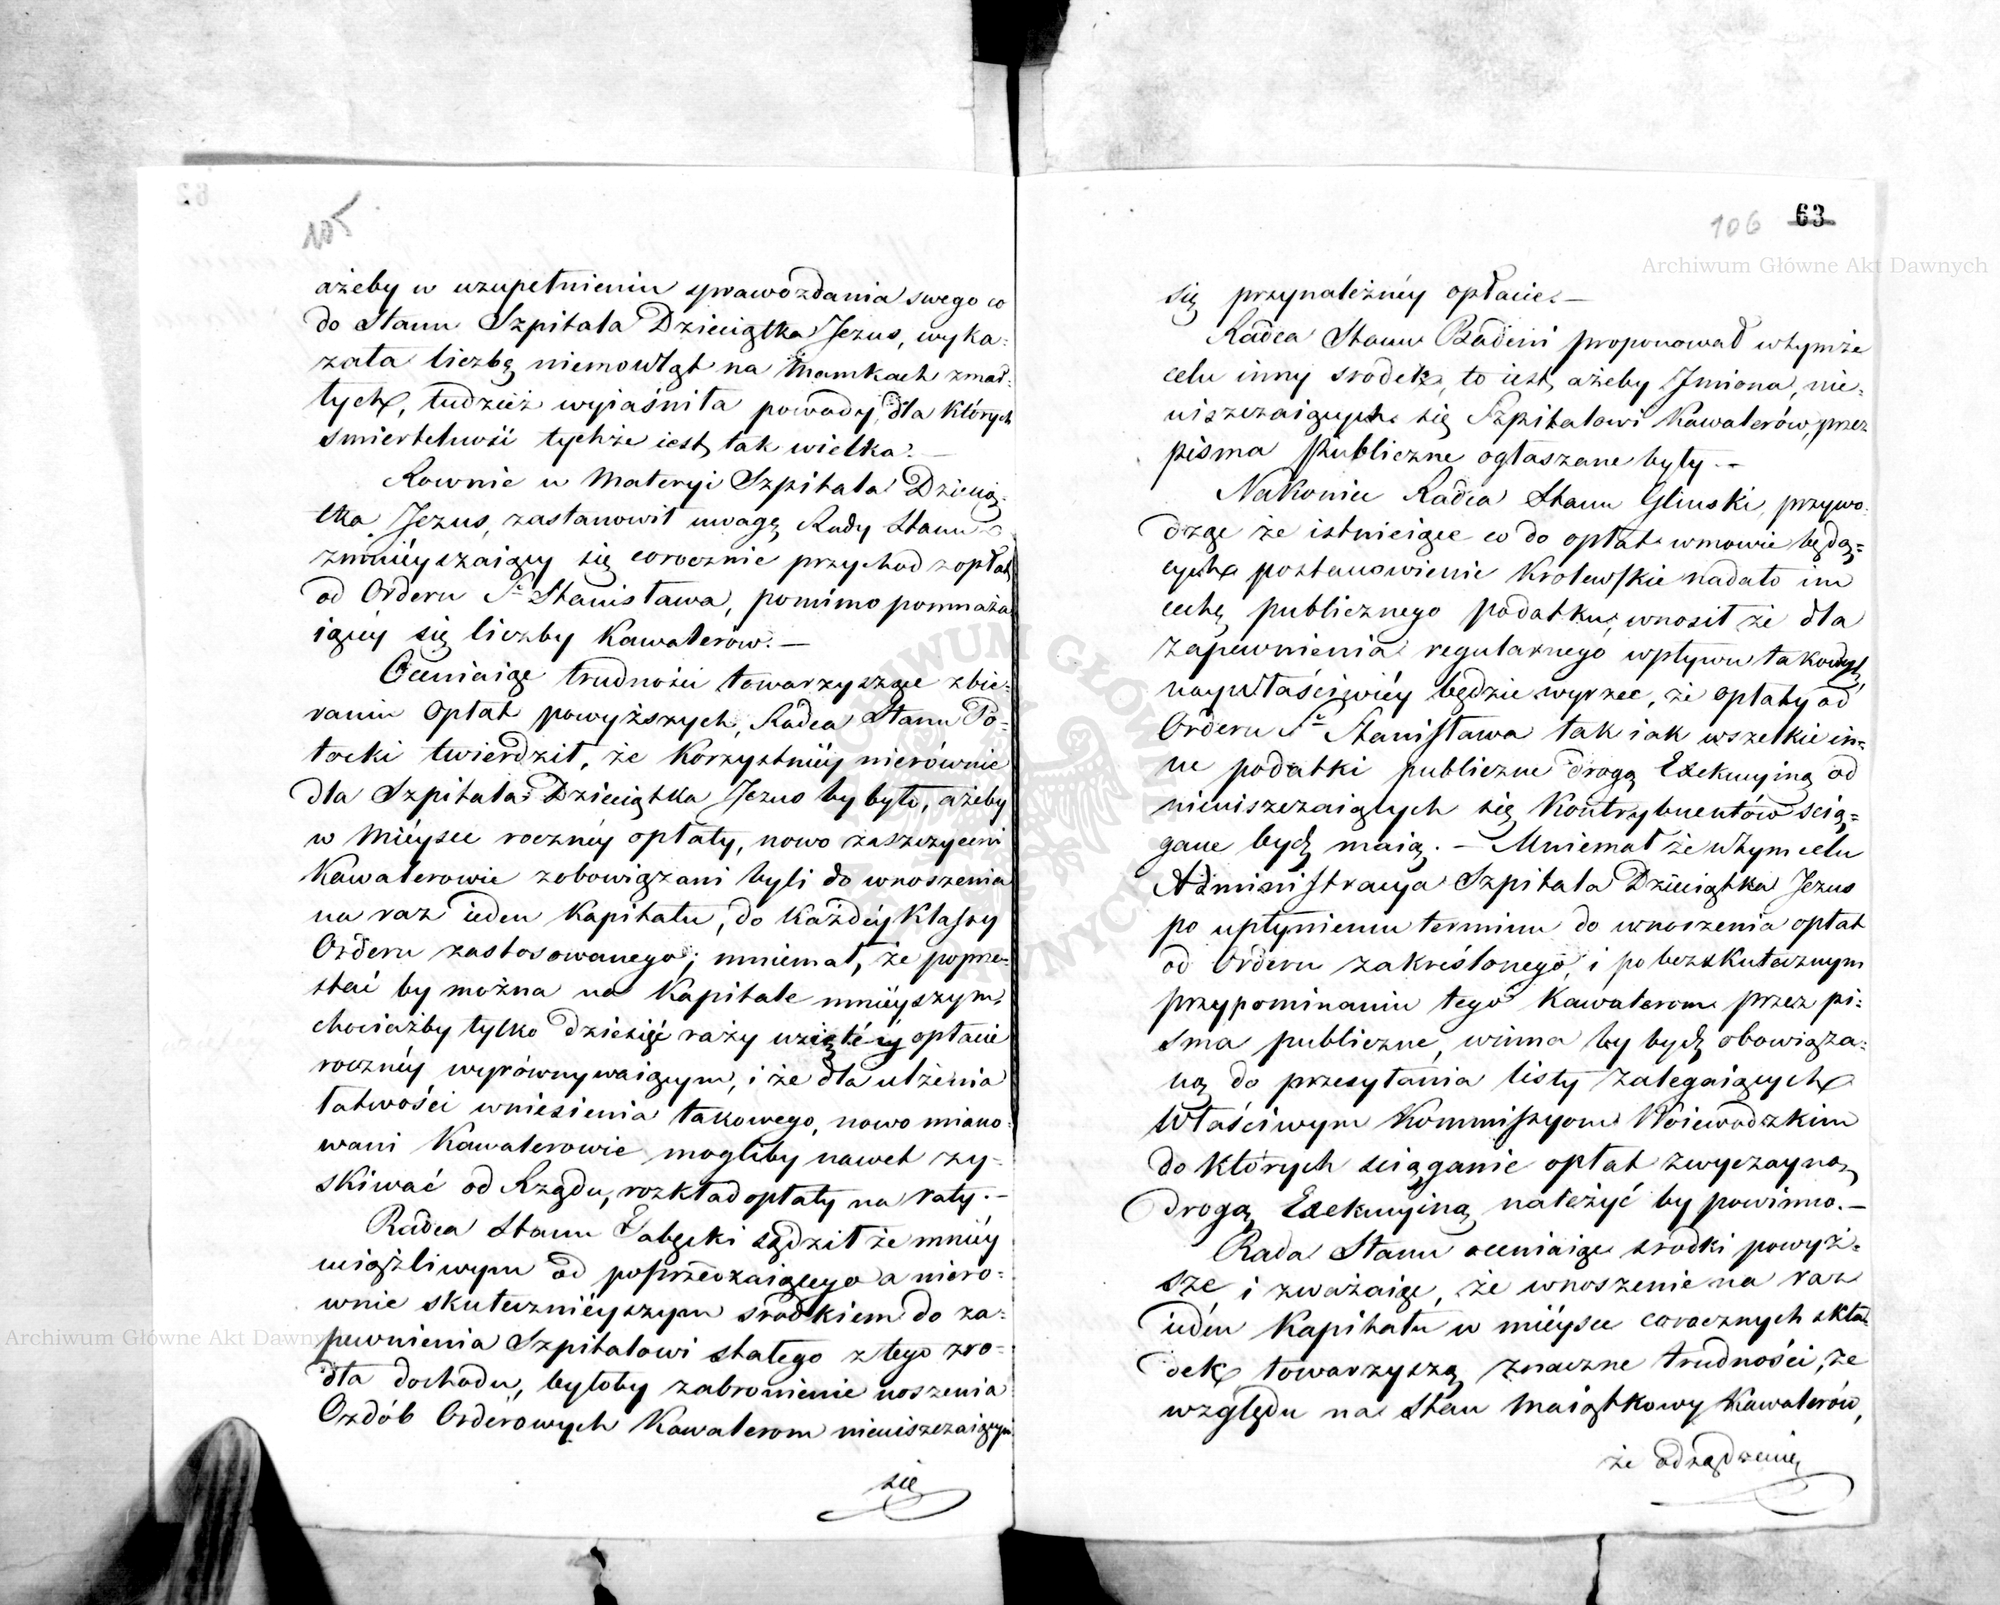 105
ażeby w uzupełnieniu sprawozdania swego co
do Stanu Szpitala Dzieciątka Jezus, wyka-
zała liczbę niemowląt na Mamkach zmar-
łych, tudzież wyiaśniła powody, dla których
smiertelność tychże iest tak wielka. —
Rownie w Materyi Szpitala Dziecią-
tka Jezus, zastanowił uwagę Rady Stanu
zmnieyszaiący się corocznie przychod z opłat
od Orderu Sgo Stanisława, pomimo pomnaża
iącéy się liczby Kawalerów. —
Oceniaiąc trudności towarzyszące zbie-
raniu Opłat powyższych, Radca Stanu Po-
tocki twierdził, że korzystniéy nierównie
dla Szpitala Dzieciątka Jezus by było, ażeby
w Mieysce rocznéy opłaty, nowo zaszczyceni
Kawalerowie zobowiązani byli do wnoszenia
na raz ieden Kapitału, do każdéy Klassy
Orderu zastosowanego; mniemał, że poprze-
stać by można na Kapitale mnieyszym,
chociażby tylko dziesięć razy wziętéy opłacie
rocznéy wyrównywaiącym, i że dla ulżenia
łatwości wniesienia takowego, nowo miano-
wani Kawalerowie mogliby nawet zy-
skiwać od Rządu, rozkład opłaty na raty. —
Radca Stanu Łabęcki sądził że mniéy
uciążliwym od poprzedzaiącego a niero-
wnie skutecznieyszym srodkiem do za-
pewnienia Szpitalowi stałego z tego zro-
dła dochodu, byłoby zabronienie noszenia
Ozdób Orderowych Kawalerom nieuiszczaiącym
się
106 63
się przynależnéy opłacie. —
Radca Stanu Badeni proponował w tymże
celu inny srodek, to iest, ażeby Imiona, nie-
uiszczaiących się Szpitalowi Kawalerów, przez
pisma Publiczne ogłaszane były. —
Nakoniec Radca Stanu Gliński, przywo-
dząc że istnieiące co do opłat w mowie będą-
cych postanowienie Krolewskie nadało im
cechę publicznego podatku, wnosił że dla
zapewnienia regularnego wpływu takowych
naywłaściwiéy będzie wyrzec, że opłaty od
Orderu Sgo Stanisława tak iak wszelkie in-
ne podatki publiczne drogą Exekucyiną od
nieuiszczaiących się Kontrybuentów scią-
gane bydź maią. — Mniemał że w tym celu
Administracya Szpitala Dzieciątka Jezus
po upłynieniu terminu do wnoszenia opłat
od Orderu zakreślonego, i po bezskutecznym
przypominaniu tego Kawalerom przez pi-
sma publiczne, winna by bydź obowiąza-
ną do przesyłania listy zalegaiących
Właściwym Kommissyom Woiewodzkim
do których sciąganie opłat zwyczayną
drogą Exekucyiną należyć by powinno. —
Rada Stanu oceniaiąc srodki powyż-
sze i zważaiąc, że wnoszenie na raz
ieden Kapitału w mieysce corocznych skła-
dek towarzyszą znaczne trudności, ze
względu na Stan Maiątkowy Kawalerów,
że odrządzenie
Archiwum Główne Akt Dawnych
Archiwum Główne Akt Dawnych